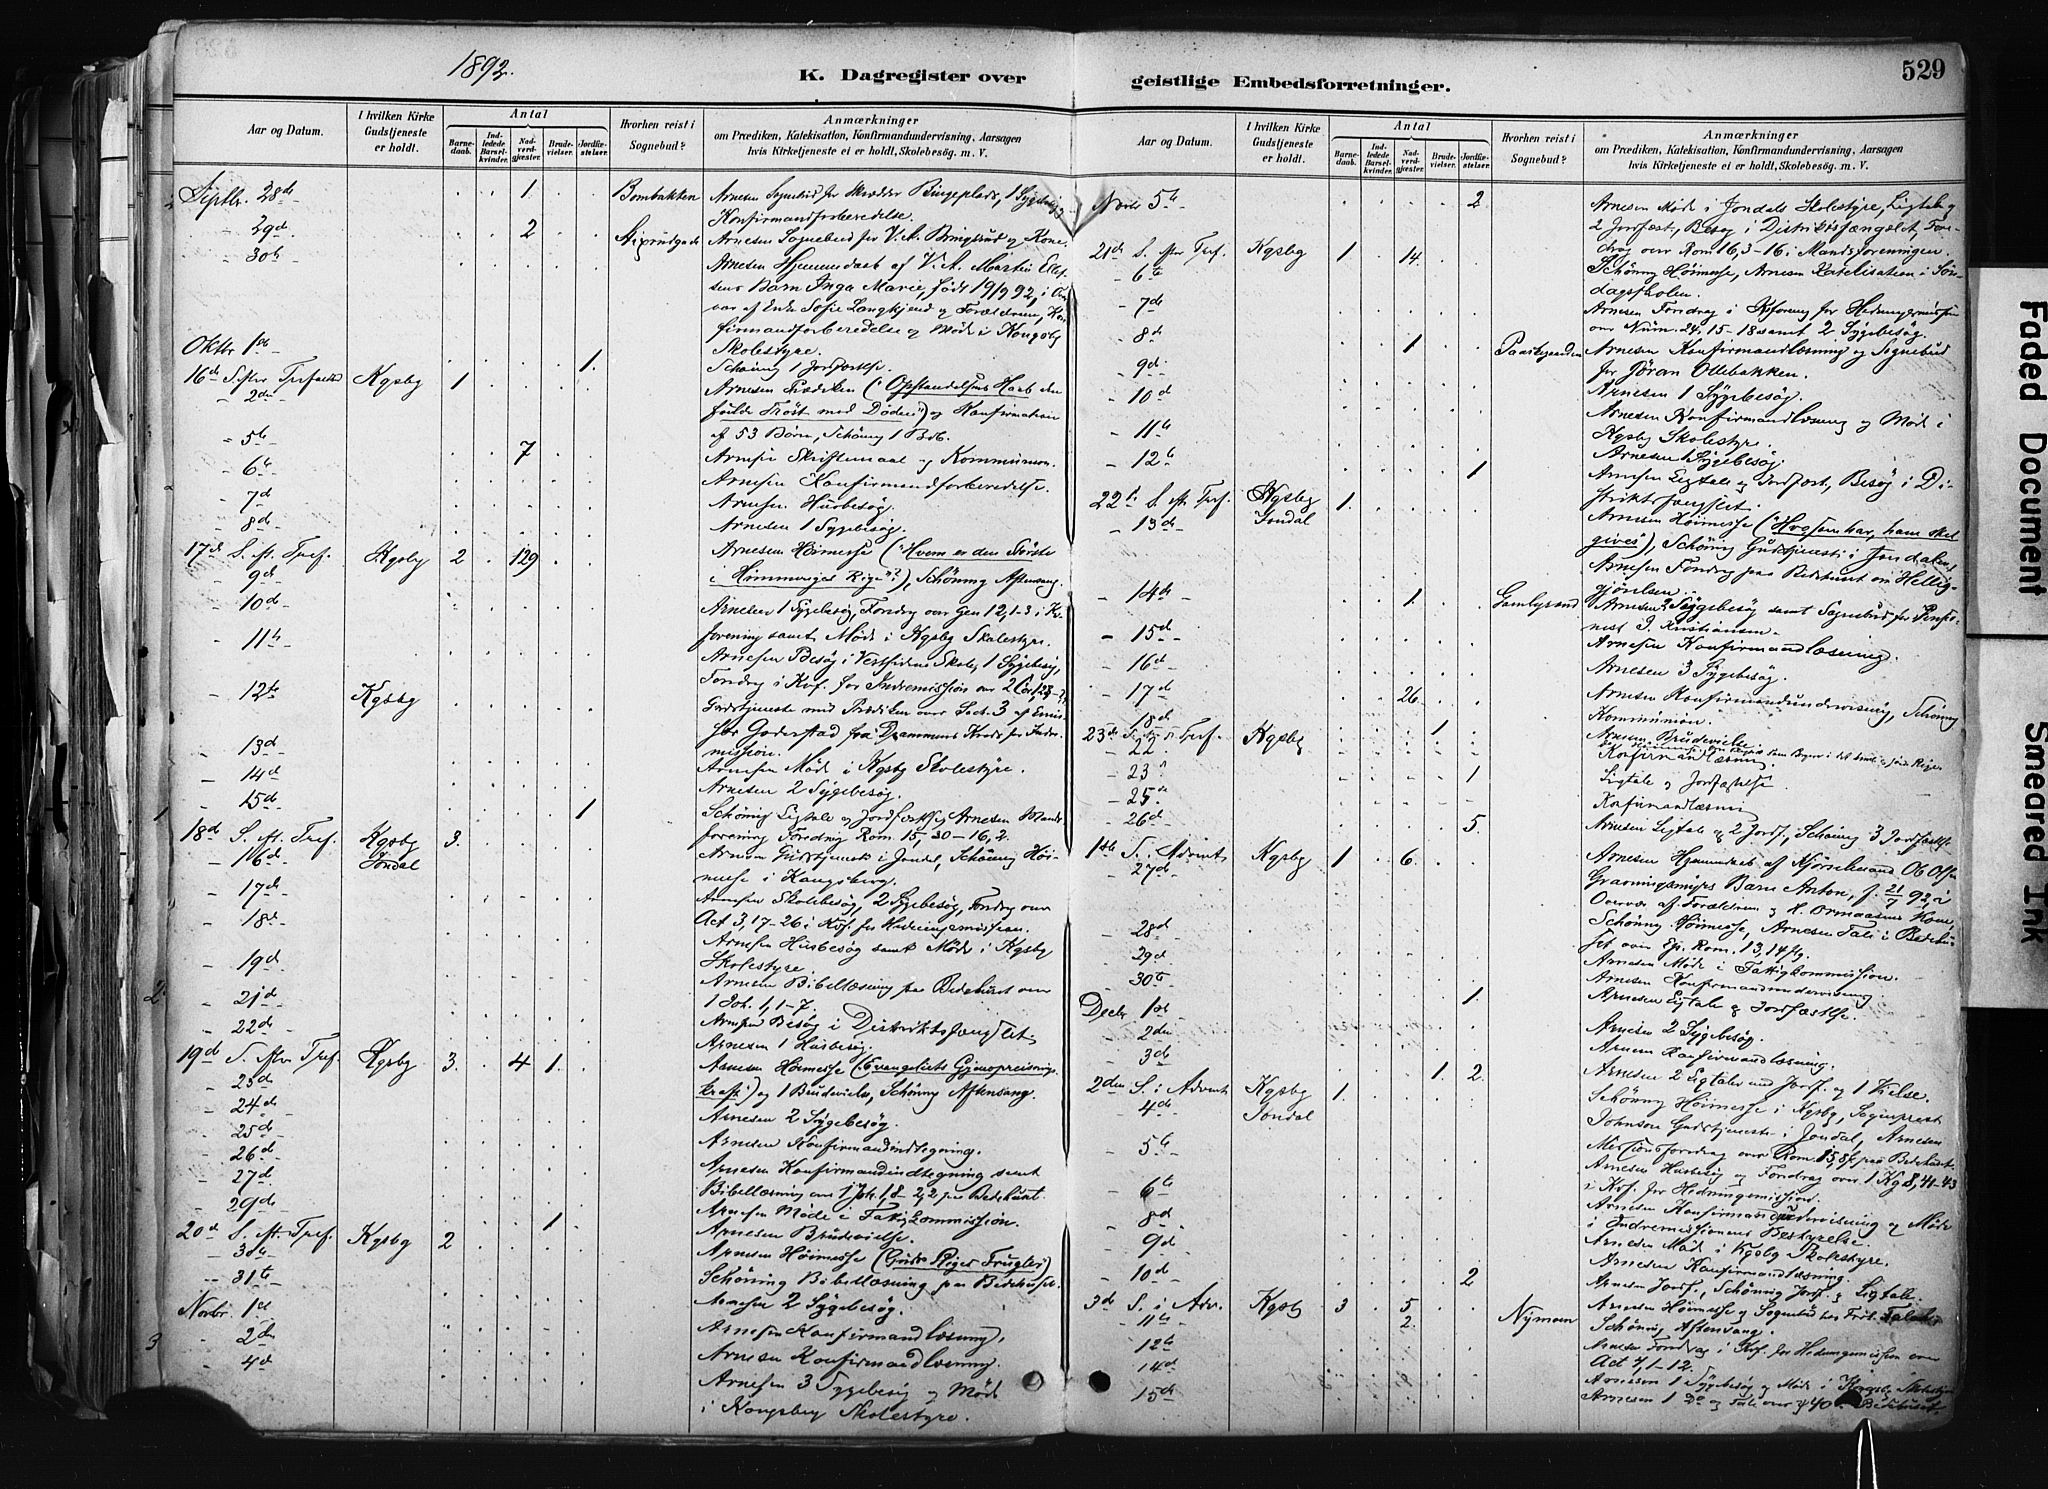 1892.
K. Dagregister over
geistlige Embedsforretninger.
529
Aar og Datum.
I hvilken Kirke Gudstjeneste er holdt.
Antal
Barnedaab.
Indledede Barselkvinder.
Nadverdgjester.
Brudevielser.
Jordfæstelser.
Hvorhen reist i Sognebud?
Anmærkninger
om Prædiken, Katekisation, Konfirmandundervisning, Aarsagen
hvis Kirketjeneste ei er holdt, Skolebesøg. m. V.
Septbr. 28de 1 Bombakken Arnesen Sognebud for
Konfirmandforberedelse.
- 29de 2 Arnesen Sognebud for V. A. Bringsrud og Kone.
- 30te Arnesen Hjemmedaab af V. A. Martin
Barn Inga Marie, født 19/9 92, i
af Enke Sofie Langkjend og Forældrene,
firmandforberedelse og Møde i Kongsbg
Skolestyre.
Oktbr 1ste 1. Schøning 1 Jordfæstelse.
16de S. efter Trefold. Kgsbg 1
- 2den Arnesen Prædiken (Opstandelsens Haab den
fulde Trøst mod Døden) og Konfirmation
af 53 Børn, Schøning 1 Brb.
- 5te 7 Arnesen Skriftemaal og Kommunion.
- 6te Arnesen Konfirmandforberedelse.
- 7de Arnesen Husbesøg.
- 8de Arnesen 1 Sygebesøg.
17de S. eft. Tref. Kgsbg 2 129 Arnesen Høimesse ("Hvem er den Største
- 9de i Himmeriges Rige"?), Schøning Aftensang.
- 10de Arnesen 1 Sygebesøg, Foredrag over Gen 12,1-3 i Kv.
forening samt Møde i Kgsbg Skolestyre.
- 11te Arnesen Besøg i Vestsidens Skole, 1 Sygebesøg,
Foredrag i Kvf. for Indremission over 2 Cor.
- 12te Kgsbg Gudstjeneste med Prædiken over Luc. 3 af Emis-
sær Goderstad fra Drammens Kreds for Indre-
mission.
- 13de Arnesen Møde i Kgsbg Skolestyre.
- 14de Arnesen 2 Sygebesøg.
- 15de 1 Schøning Ligtale og Jordfæstelse, Arnesen Mands-
forening Foredrag Rom. 15,30-16,2.
18de S. eft. Tref. Kgsbg 3. Jondal
- 16de Arnesen Gudstjeneste i Jondal, Schøning Høi-
messe i Kongsberg.
- 17de Arnesen Skolebesøg, 2 Sygebesøg, Foredrag over
Act 3,17-26 i Kvf. for Hedningemissionen.
- 18de Arnesen Husbesøg samt Møde i Kgsbg
Skolestyre.
- 19de Arnesen Bibellæsning paa Bedehuset over
1 Joh. 1,1-7.
- 21de Arnesen Besøg i Distriktsfængslet
- 22de Arnesen 1 Husbesøg.
19de S. efter Tref. Kgsbg 3. 4 1. Arnesen Høimesse (Evangeliets Gjenopreisnings-
- 23de kraft) og 1 Brudevielse, Schøning Aftensang.
- 24de Arnesen 2 Sygebesøg.
- 25de Arnesen Konfirmandindtegning.
- 26de Arnesen Konfirmandindtegning samt
- 27de Bibellæsning over 1 Joh. 1,8-2,2 paa Bedehuset.
- 29de 1 Arnesen Møde i Fattigkommission.
Arnesen Brudevielse.
20de S. eft. Tref. Kgsbg 2
- 30te Arnesen Høimesse (Guds Riges Frugter)
- 31te Schøning Bibellæsning paa Bedehuset.
Novbr. 1ste Arnesen 2 Sygebesøg.
- 2den Arnesen Konfirmandlæsning.
- 4de Arnesen Konfirmandlæsning.
Arnesen 3 Sygebesøg og Møde
i Kongsberg Skolestyre.
Aar og Datum.
I hvilken Kirke Gudstjeneste er holdt.
Antal
Barnedaab.
Indledede Barselkvinder.
Nadverdgjester.
Brudevielser.
Jordfæstelser.
Hvorhen reist i Sognebud?
Anmærkninger
om Prædiken, Katekisation, Konfirmandundervisning, Aarsagen
hvis Kirketjeneste ei er holdt, Skolebesøg. m. V.
Novbr 5te 2 Arnesen Møde i Jondals Skolestyre, Ligtale og
2 Jordfæst., Besøg i Distriktsfængslet, Fore-
drag over Rom 16,3-16 i Mandsforeningen.
21de S. efter Tref. Kgsbg 1. 14.
- 6te Schøning Høimesse, Arnesen Katekisation i Søn-
dagsskolen.
- 7de Arnesen Foredrag i Kvforening for Hedningemission
over Num. 24, 15-18 samt 2 Sygebesøg.
- 8de 1 Arnesen Konfirmandlæsning og Sognebud
for Jøran Ollebakken.
- 9de Arnesen 1 Sygebesøg.
- 10de Arnesen Konfirmandlæsning og Møde i
Kgsbg Skolestyre.
- 11te Arnesen 1 Sygebesøg.
- 12te 1 Arnesen Ligtale og Jordfæst., Besøg i Di-
striktsfængslet.
22de S. eft. Tref. Kgsbg 1. Jondal
- 13de Arnesen Høimesse ("Hvo som har, ham skal
gives"), Schøning Gudstjeneste i Jondalen,
Arnesen Foredrag paa Bedehuset om Hellig-
gjørelsen.
- 14de 1. Arnesen Sygebesøg samt Sognebud for Pensio-
nist J. Kristiansen.
- 15de Arnesen Konfirmandlæsning.
- 16de Arnesen 3 Sygebesøg.
- 17de 26 Arnesen Konfirmandundervisning, Schøning
Kommunion.
- 18de 1 Arnesen Brudevielse
23de S. eft. Tref. Kgsbg
- 22 Konfirmandlæsning.
- 23 1 Ligtale og Jordfæstelse
- 25de Konfirmandlæsning
- 26de 5. Arnesen Ligtale og 2 Jordf., Schøning 3 Jordfæstelse
1ste S. i Advent Kgsbg 1 6.
- 27de Arnesen Hjemmedaab af Kjørselsmand Ob Olsen
Gravningsmyrs Barn Anton, f. 21/7 92, i
Overvær af Forældrene og H. Ormaasens Kone,
Schøning Høimesse, Arnesen Tale i Bedehu-
set over Ep. Rom. 13,14 flg.
- 28de Arnesen Møde i Fattigkommission.
- 29de Arnesen Konfirmandundervisning.
- 30te 1. Arnesen Ligtale og Jordfæstelse.
Decbr 1ste Arnesen 2 Sygebesøg.
- 2den Arnesen Konfirmandlæsning.
- 3de 1 2. Arnesen 2 Ligtaler ved Jordf. og 1 Vielse.
2den S. i Advent Kgsbg 1. Jondal
- 4de Schøning Høimesse i Kgsbg, Sogneprest
Johnson Gudstjeneste i Jondal, Arnesen
Missionsforedrag over Rom. 15,8f. paa Bedehuset.
- 5te Arnesen Husbesøg og Foredrag over 1 Kg 8,41-43
i Kvf. for Hedningemission.
- 6te Arnesen Konfirmandundervisning og Møde
i Indremissionens Bestyrelse.
- 8de Arnesen Møde i Kgsbg Skolestyre.
- 9de Arnesen Konfirmandlæsning.
- 10de 2 Arnesen Jordf., Schøning Jordf. og Ligtale.
3de S. i Adv. Kgsbg 3 5
- 11te 2. Nymoen Arnesen Høimesse og Sognebud
Schøning Aftensang.
- 12te Arnesen Foredrag i Kvf. for Hedningemission over
Act 7,1-12.
- 14de Arnesen 1 Sygebesøg og Møde i Kongsbg Skolestyre
- 15de Arnesen 1 Do og Tale over ψ 40 Bedehuset.
Faded Document
Smeared Ink